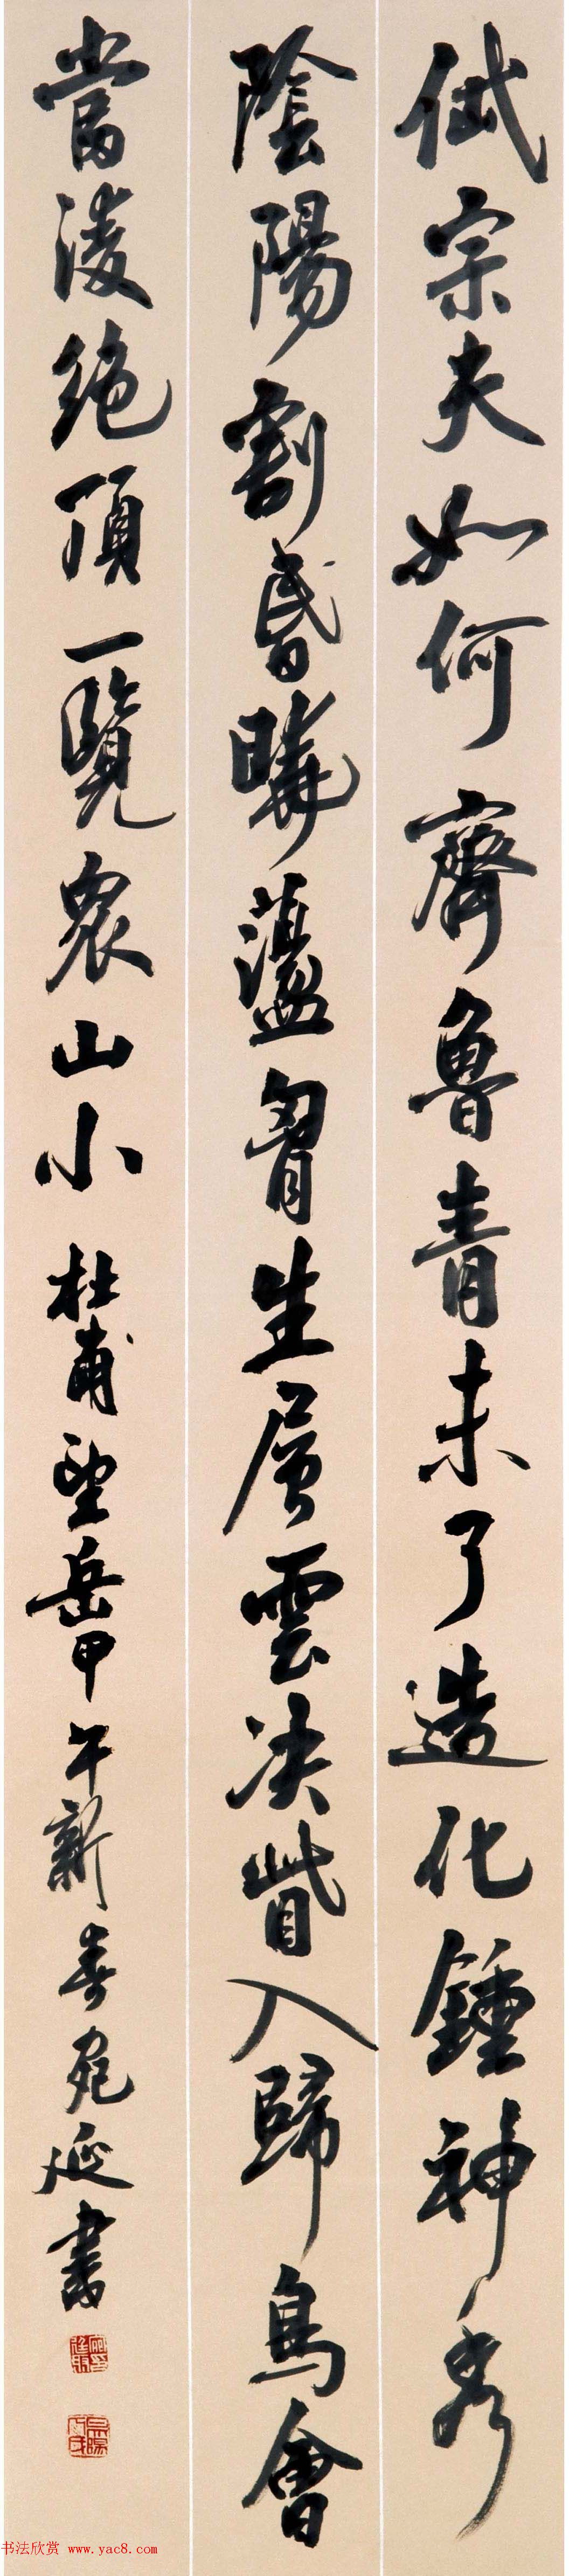 岱宗夫如何齊魯青未了造化鍾神秀
陰陽割昬曉蘯胷生層雲决眥入歸鳥會
當淩絶頂一覽眾山小 杜甫望岳甲午新春宛延書
书法欣赏 www.yac8.com